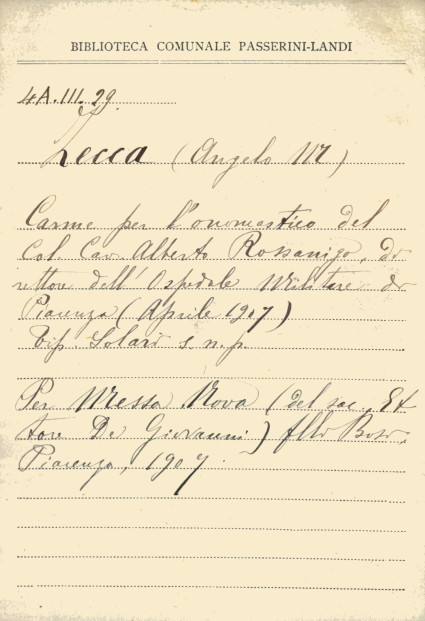 BIBLIOTECA COMUNALE PASSERINI-LANDI
4A.III.29.
Zecca (Angelo M)
Carme per l'onomastico del
Col. Cav. Alberto Rossanigo, di
rettore dell'Ospedale Militare di
Piacenza (Aprile 1907)
Tip. Solari s. n. p.
Per Messa Nova (del sac. Et
tore De Giovanni) flli Bosi.
Piacenza, 1907.